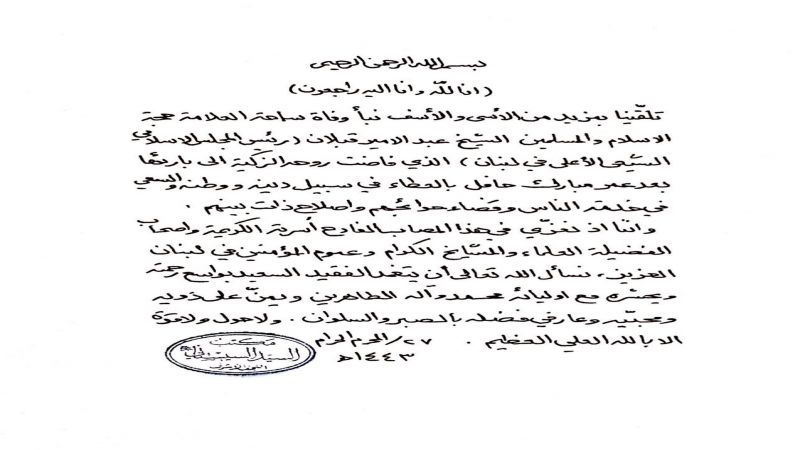 بسم الله الرحمن الرحيم
(انا لله وانا اليه راجعون)
تلقّينا بمزيد من الأسى والأسف نبأ وفاة سماحة العلامة حجة
الاسلام والمسلمين الشيخ عبد الامير قبلان (رئيس المجلس الاسلامي
الشيعي الأعلى في لبنان) الذي فاضت روحه الزكية الى بارئها
بعد عمر مبارك حافل بالعطاء في سبيل دينه ووطنه والسعي
في خدمة الناس وقضاء حوائجهم واصلاح ذات بينهم .
واننا اذ نعزّي في هذا المصاب الفادح أسرته الكريمة واصحاب
الفضيلة العلماء والمشايخ الكرام وعموم المؤمنين في لبنان
العزيز، نسأل الله تعالى أن يتغمد الفقيد السعيد بواسع رحمته
ويحشره مع اوليائه محمد وآله الطاهرين ويمنّ على ذويه
ومحبّيه وعارفي فضله بالصبر والسلوان . ولا حول ولا قوة
الا بالله العلي العظيم . ٢٧/المحرم الحرام
١٤٤٣هـ
مكتب
السيد السيستاني
النجف الاشرف